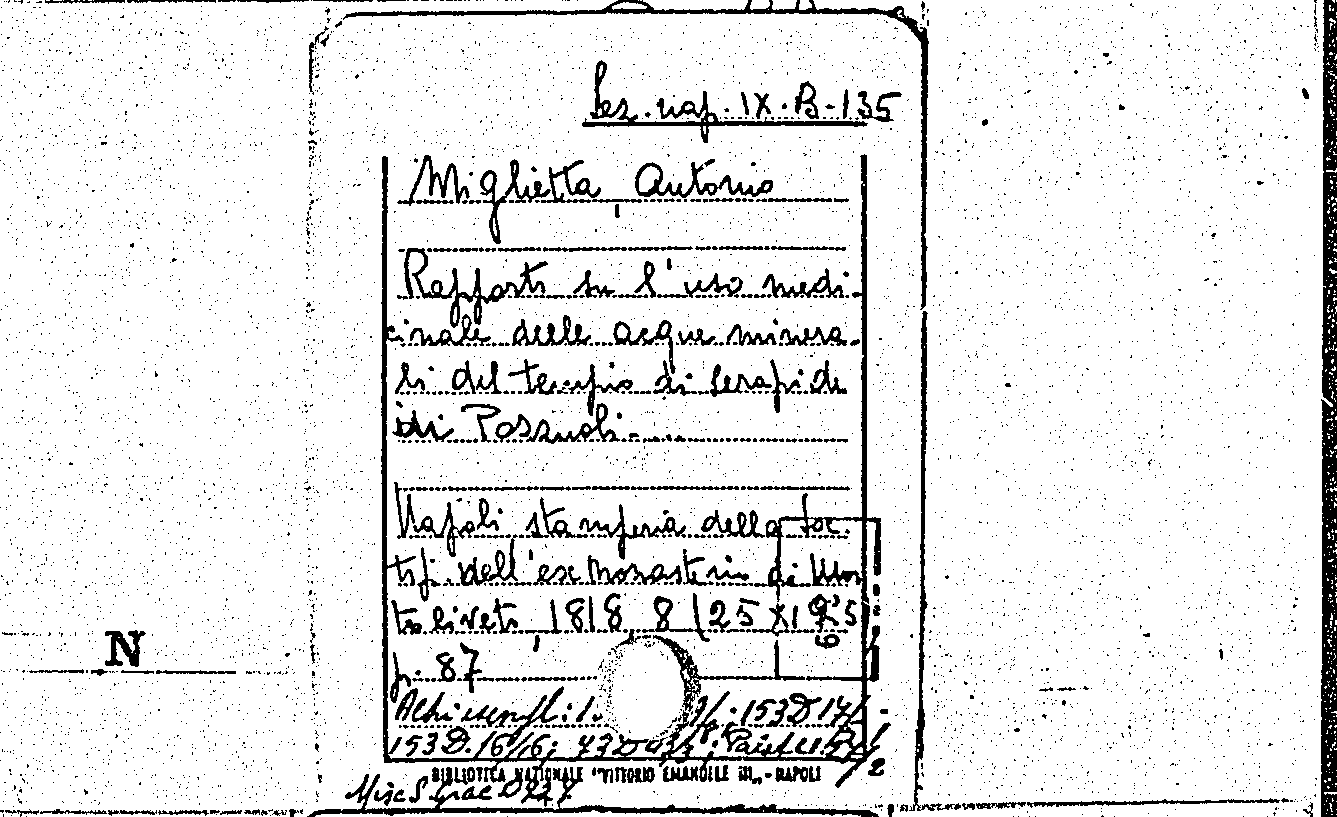 Sez. nap. IX. B. 135
Miglietta, Antonio
Rapporto su l'uso medi-
cinale delle acque minera-
li del tempio di Serapide
di Pozzuoli....
Napoli stamperia della Soc.
tip. dell'ex Monasterio di Mon
toliveto, 1818 8 (25
p. 87
Altri esempl: 1. 153 D 17/
153 D. 16/16;
BIBLIOTECA NAZIONALE "VITTORIO EMANUELE III" - NAPOLI
Misc S
N